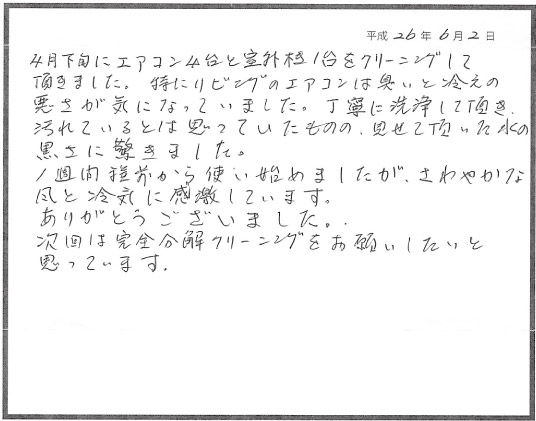 平成 26 年 6 月 2 日
4月下旬にエアコン4台と室外機1台をクリーニングして
頂きました。特にリビングのエアコンは臭いと冷えの
悪さが気になっていました。丁寧に洗浄して頂き、
汚れているとは思っていたものの、見せて頂いた水の
黒さに驚きました。
1週間程前から使い始めましたが、さわやかな
風と冷気に感激しています。
ありがとうございました。
次回は完全分解クリーニングをお願いしたいと
思っています。